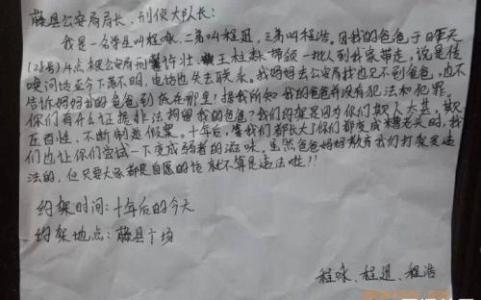 藤县公安局局长,刑侦大队长:
我是一名学生叫程咏,二弟叫程迅,三弟叫程浩。因我的爸爸于昨天
(21号)4点被公安局刑警许壮 王柱献 带领一批人到我家带走,说是传
唤问话至今下落不明,电话也失去联系,我妈妈去公安局找也见不到爸爸,也不
告诉妈妈我的爸爸到底在哪里!据我所知我的爸爸并没有犯法和犯罪,
你们有什么证据非法拘留我的爸爸?我们约架是因为你们欺人太甚,欺
压百姓,不断制造假案,十年后,等我们都长大了你们都变成糟老头时,我
们也让你们尝试一下变成弱者的滋味,虽然爸爸妈妈教育我们打架是违
法的,但只要大家都是自愿的话就不算是违法啦!!
约架时间:十年后的今天
约架地点:藤县广场
程咏、程迅、程浩